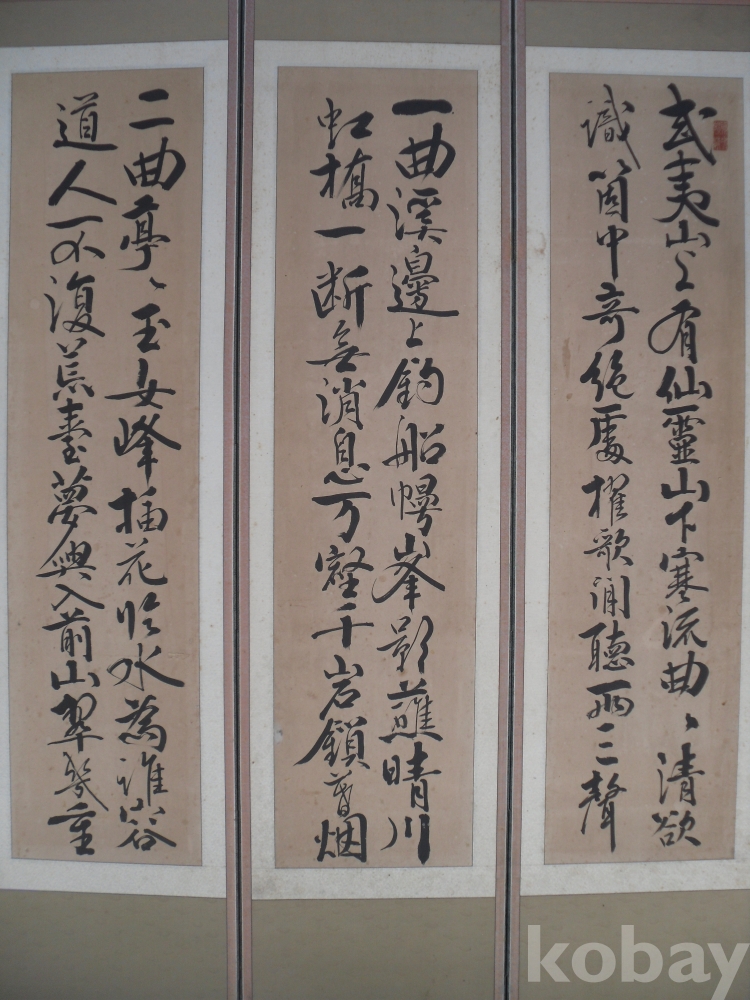 武夷山上有仙靈山下寒流曲〻清欲
識箇中奇絶處櫂歌閒聽兩三聲
一曲溪邊上釣船幔峯影蘸晴川
虹橋一断無消息万壑千岩鎖暮烟
二曲亭〻玉女峰插花臨水為誰容
道人不復荒臺夢興入前山翠幾重
kobay